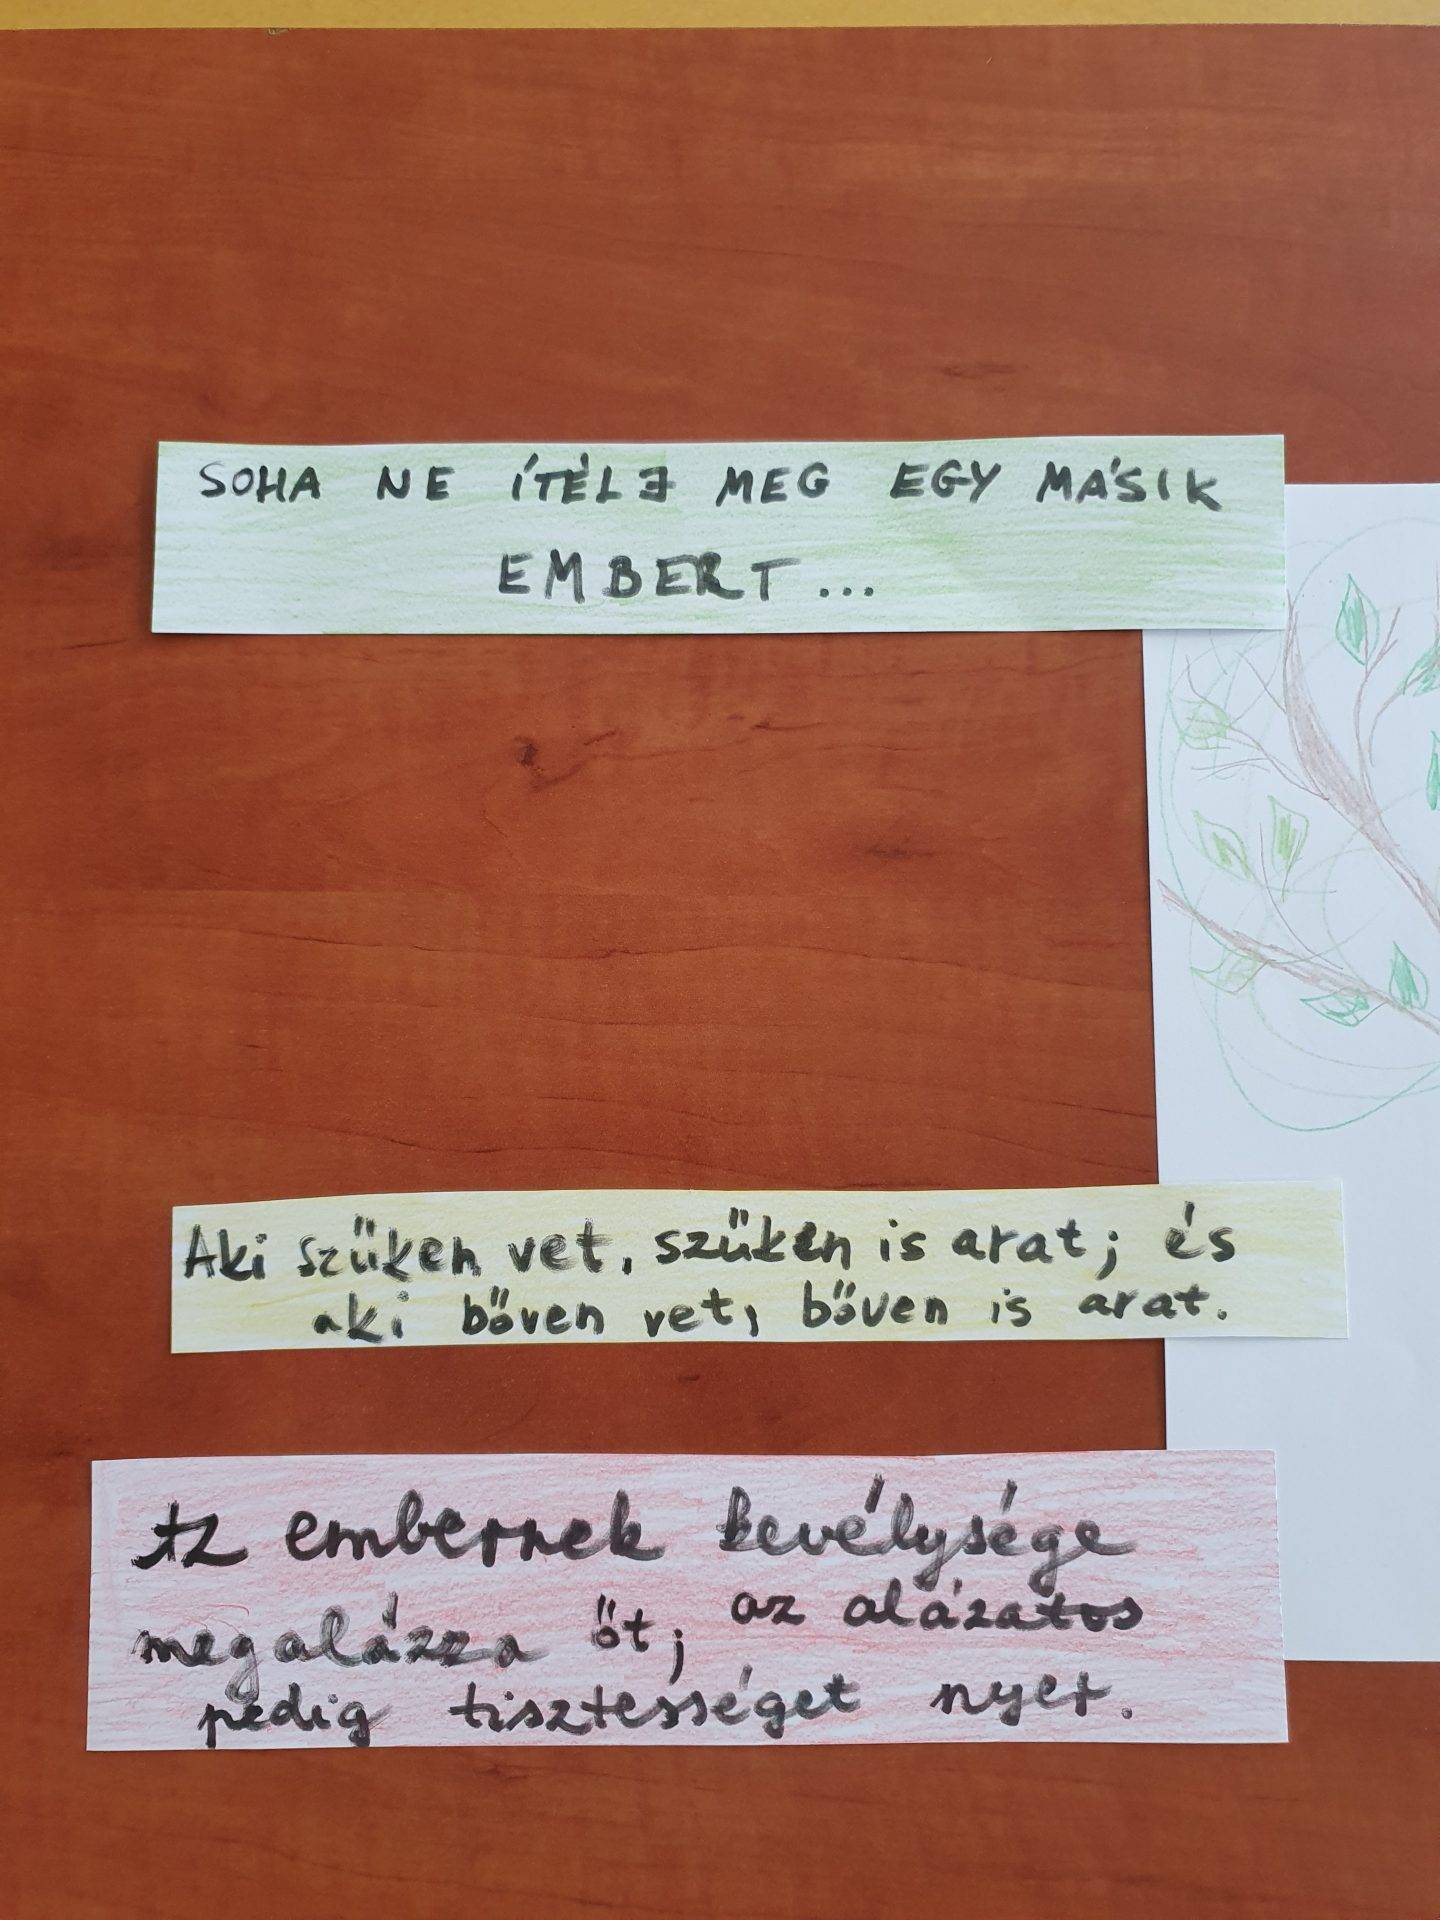 SOHA NE ÍTÉLJ MEG EGY MÁSIK
EMBERT...
Aki szűken vet, szűken is arat; és
aki bőven vet, bőven is arat.
Az embernek kevélysége
megalázza őt; az alázatos
pedig tisztességet nyer.